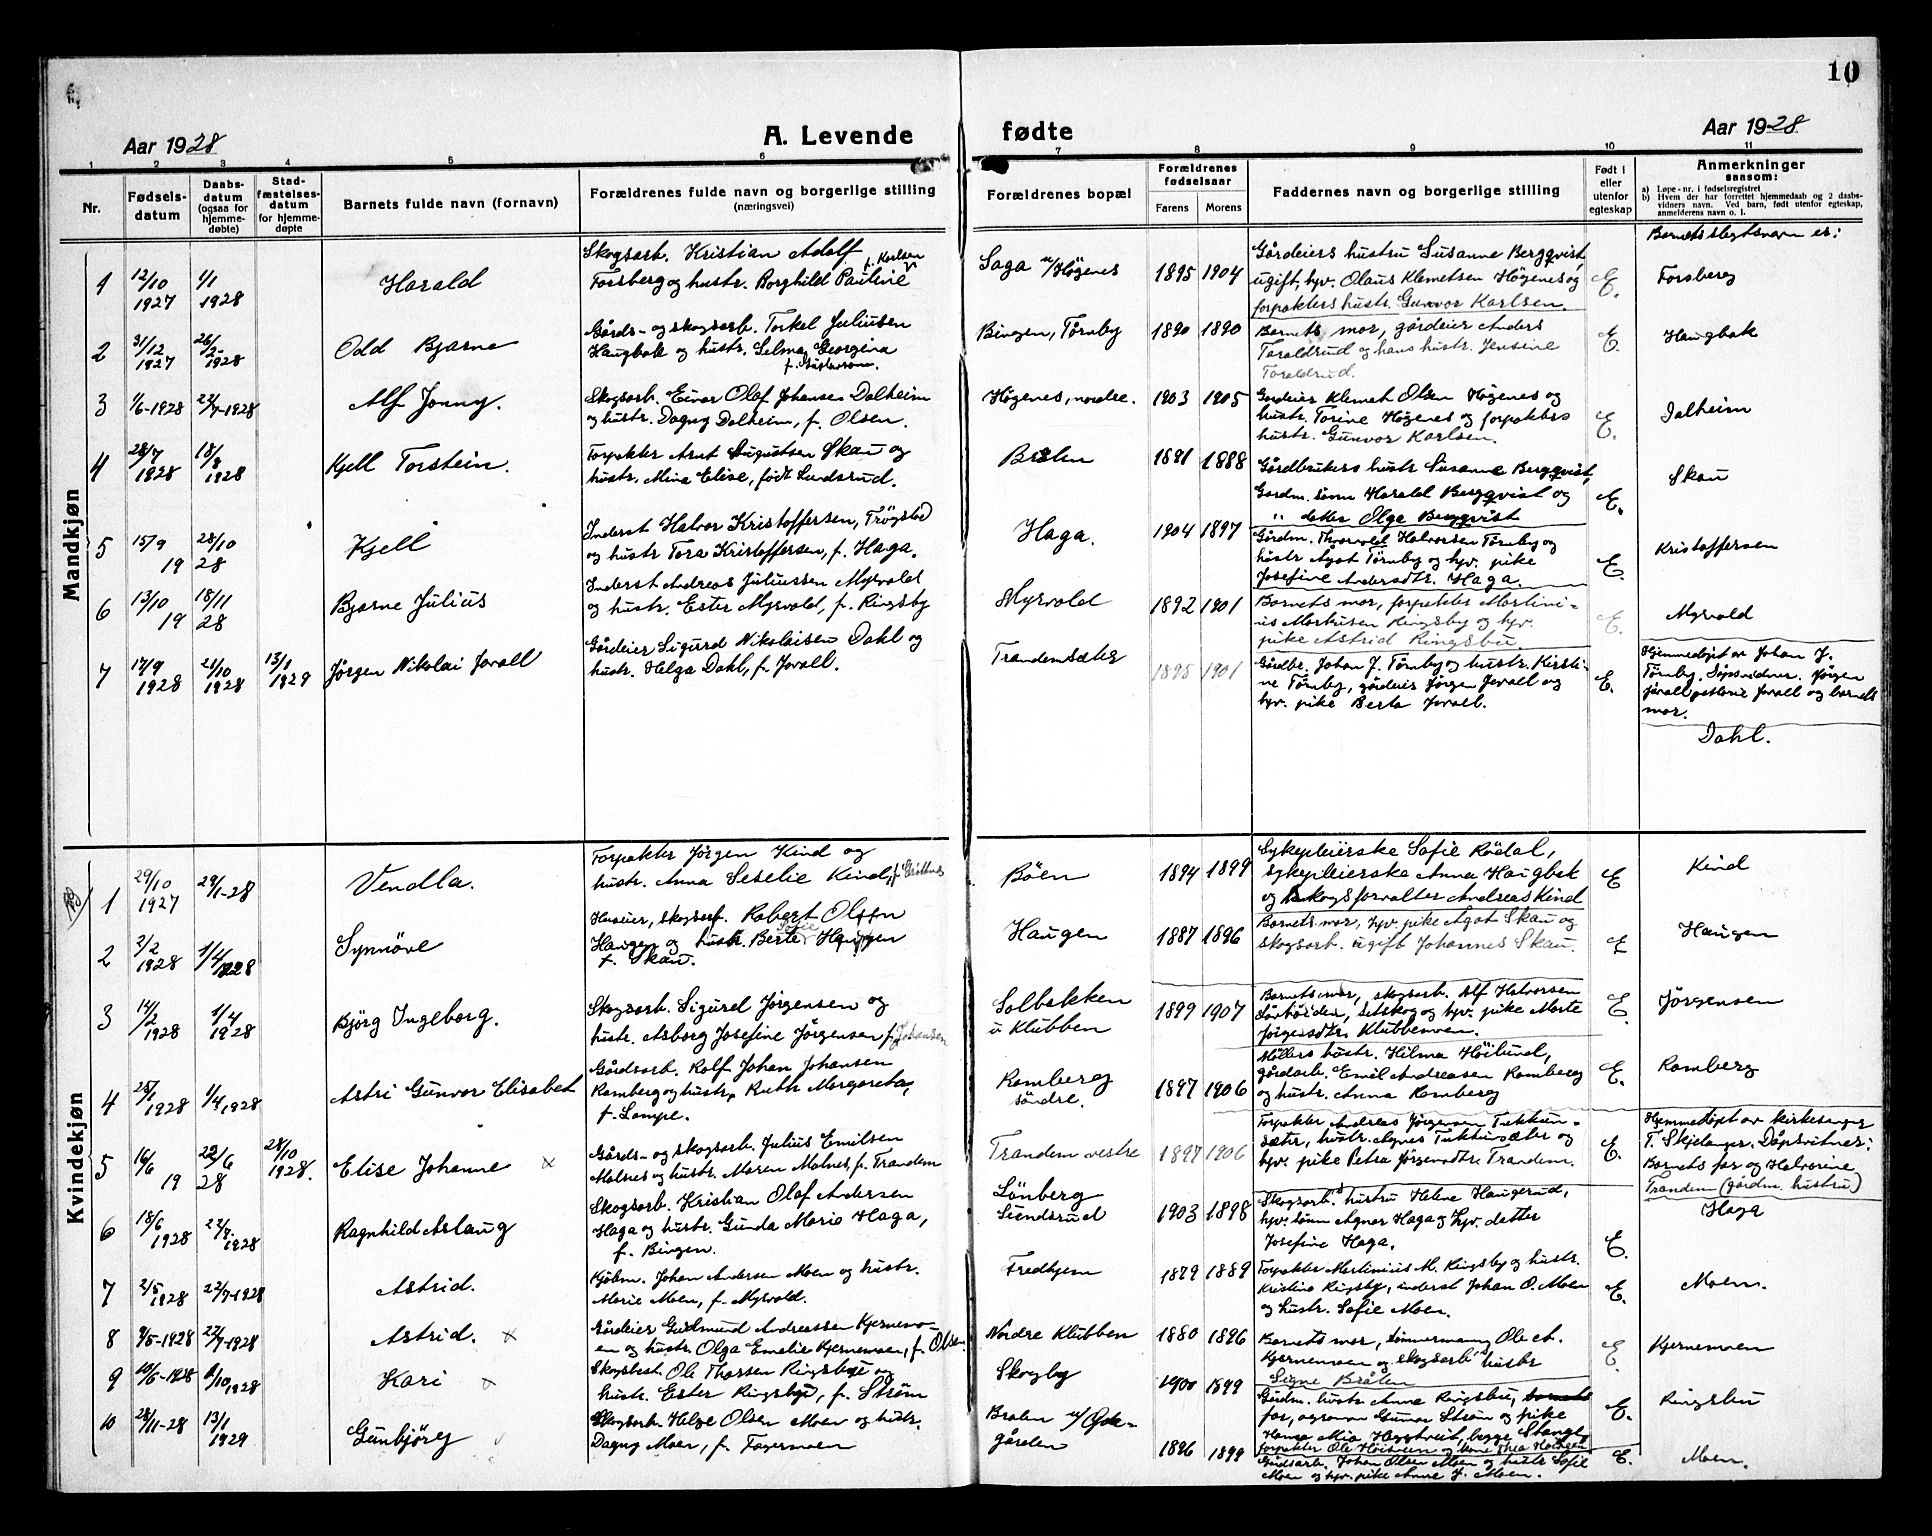 10
Aar 1928
A. Levende
fødte
Aar 1928
1 2 3 4 5 6 7 8 9 10 11
Nr.
Fødsels-
datum
Daabs-
datum
(ogsaa for
hjemme-
døbte)
Stad-
fæstelses-
datum
for hjemme-
døpte
Barnets fulde navn (fornavn)
Forældrenes fulde navn og borgerlige stilling
(næringsvei)
Forældrenes bopæl
Forældrenes
fødselsaar
Farens
Morens
Faddernes navn og borgerlige stilling
Født i
eller
utenfor
egteskap
Anmerkninger
saasom:
a) Løpe-nr. i fødselsregistret
b) Hvem der har forrettet hjemmedaab og 2 daabs-
vidners navn. Ved barn, født utenfor egteskap,
anmelderens navn o. l.
Barnets slegtsnavn er:
Mandkjøn
1
12/10
1927
1/1
1928
Harald
Skogsarb. Kristian Adolf
Forsberg og hustr. Borghild Pauline
f. Karlsen
Saga u/Högenes
1895 1904
Gårdeiers hustru Susanne Bergqvist,
ugift, hjv. Olaus Klemetsen Högenes og
forpakters hustr. Gunvor Karlsen.
E.
Forsberg
2
31/12
1927
26/2-
1928
Odd Bjarne
Gårds- og skogsarb. Torkel Juliusen
Haugbak og hustr. Selma Georgina
f. Gustavson.
Bingen, Tørnby
1890 1890
Barnets mor, gårdeier Anders
Toraldrud og hans hustr. Jensine
Toraldrud.
E.
Haugbak
3
1/6-1928
22/7-1928
Alf Jonny.
Skogsarb. Einar Olaf Johansen Dalheim
og hustr. Dagny Dalheim, f. Olsen.
Högenes, nordre.
1903 1905
Gardeier Klemet Olsen Högenes og
hustr. Torine Högenes og forpakters
hustr. Gunvor Karlsen.
E.
Dalheim
4
28/7
1928
18/8
1928
Kjell Torstein.
Forpakter Arnt Augustsen Skau og
hustr. Mina Elise, født Lundsrud.
Brålen
1881 1888
Gårdbrukers hustr Susanne Bergqvist,
Gardm. sønn Harald Bergqvist og
" datter Olga Bergqvist
E.
Skau
5
15/9
19
28/10
28
Kjell
Inderst Halvor Kristoffersen, Trögstad
og hustr Tora Kristoffersen, f. Haga.
Haga.
1904 1897
Gårdm. Thorvald Halvorsen Tørnby og
hustr Agot Tørnby og hjv. pike
Josefine Andersdtr. Haga.
E.
Kristoffersen
6
13/10
19
18/11
28
Bjarne Julius
Inderst Andreas Juliussen Myrvold
og hustr. Ester Myrvold, f. Ringsby
Myrvold
1892 1901
Barnets mor, forpakter Martini-
us Markusen Ringsby og hjv.
pike Astrid Ringsby
E.
Myrvold
7
17/9
1928
21/10
1928
13/1
1929
Jörgen Nikolai Jovall
Gårdeier Sigurd Nikolaisen Dahl og
hustr. Helga Dahl, f. Jovall.
Trandemsæter
1895 1901
Gårdbr. Johan J. Tørnby og hustr. Kirsti-
ne Tørnby, gårdeier Jörgen Jovall og
hjv. pike Berta Jovall.
E.
Hjemmedøpt av Johan J.
Tørnby. Jörgen
Jovall Jovall og barnets
mor.
Dahl.
Kvindekjøn
1
29/10
1927
29/1-28
Vendla.
Forpakter Jörgen Kind og
hustr. Anna Seselie Kind, f. Gröttnes
Böen
1894 1899
Sykepleierske Sofie Rödal,
sykepleierske Anna Haugbak
og skogsforvalter Andreas Kind
E
Kind
2
2/2
1928
1/4
1928
Synnöve
Huseier, skogsarb. Robert Olsen
Haugen og hustr. Berte Sofie Haugen
f. Skau.
Haugen
1887 1896
Barnets mor, hjv. pike Agot Skau og
skogsarb. ugift Johannes Skau.
E
Haugen
3
14/2
1928
1/4
1928
Björg Ingeborg.
Skogsarb. Sigurd Jörgensen og
hustr. Asborg Josefine Jörgensen f. Johansen
Solbakken
u Klubben
1899 1907
Barnets mor, skogsarb. Alf Halvorsen
Setskog og hjv. pike Marte
Jörgensdtr. Klubbenven.
E.
Jörgensen
4
25/1
1928
1/4 1928
Astri Gunvor Elisabet
Gårdsarb. Rolf Johan Johansen
Ramberg og hustr. Ruth Margareta,
f. Lampe.
Ramberg
söndre.
1897 1906
Møllers hustr. Hilma Höilund,
gårdarb. Emil Andreasen Ramberg
og hustr. Anna Ramberg
E.
Ramberg
5
16/6
19
22/6
28
28/10
1928.
Elise Johanne
Gårds- og skogsarb. Julius Emilsen
Malnes og hustr. Maren Malnes, f. Trandem
Trandem vestre
1897 1906
Forpakter Andreas Jörgensen Tukkun-
sæter, hustr. Agnes Tukkunsæter og
hjv. pike Petra Jörgensdtr. Trandem.
E.
Hjemmedöpt av kirkesanger
T. Skjelanger. Dåpsvitner:
Barnets far og Halvorine
Trandem (gårdm. hustru)
6
18/6
1928
22/7-
1928
Ragnhild Aslaug
Skogsarb. Kristian Olaf Andersen
Haga og hustr. Gunda Marie Haga,
f. Bingen.
Lönberg
Sundsrud
1903 1898
Skogsarb.s hustru Helene Haugerud,
hjv. sønn Agnar Haga og hjv. datter
Josefine Haga.
E.
Haga
7
2/5
1928
22/7-1928
Astrid.
Kjöbm. Johan Andersen Moen og hustr.
Marie Moen, f. Myrvold.
Fredhjem
1879 1889
Forpakter Martinius M. Ringsby og hustr.
Kristine Ringsby, inderst Johan O. Moen
og hustr. Sofie Moen.
E.
Moen.
8
9/5-1928
22/7-1928
Astrid.
Gårdeier Gudmund Andreassen Kjernemo-
en og hustr. Olga Emelie Kjernemoen, f. Olsen.
Nordre Klubben
1880 1896
Barnets mor, tømmermann Ole A.
Kjernemoen og skogsarb.s hustr
Signe Brålen
E.
Kjernemoen
9
10/6-1928
6/10 1928
Kari
Skogsbest. Ole Thorsen Ringsby og
hustr. Ester Ringsby, f. Ström
Skogby
1900 1899
Gårdm. hustr Anne Ringsby, barnets
far, agronom Gunnar Ström og pike
Hanna Mia Haggtveit, begge Stange,
forpakter Ole
E.
Ringsby
10
28/11-28
13/1
1929
Gunbjörg
Skogsarb. Helge Olsen Moen og hustr.
Dagny Moen, f. Fagermoen
Brålen u/Øde-
gården
1896 1899
Gårdsarb. Johan Olsen Moen og hustr Sofie
Moen og hjv. pike Anne J. Moen.
E.
Moen.